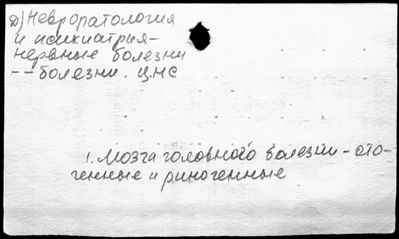 Д) Невропатология
и психиатрия-
нервные болезни
-- болезни. ЦНС
1. Мозга головного болезни-ото-
генные и риногенные